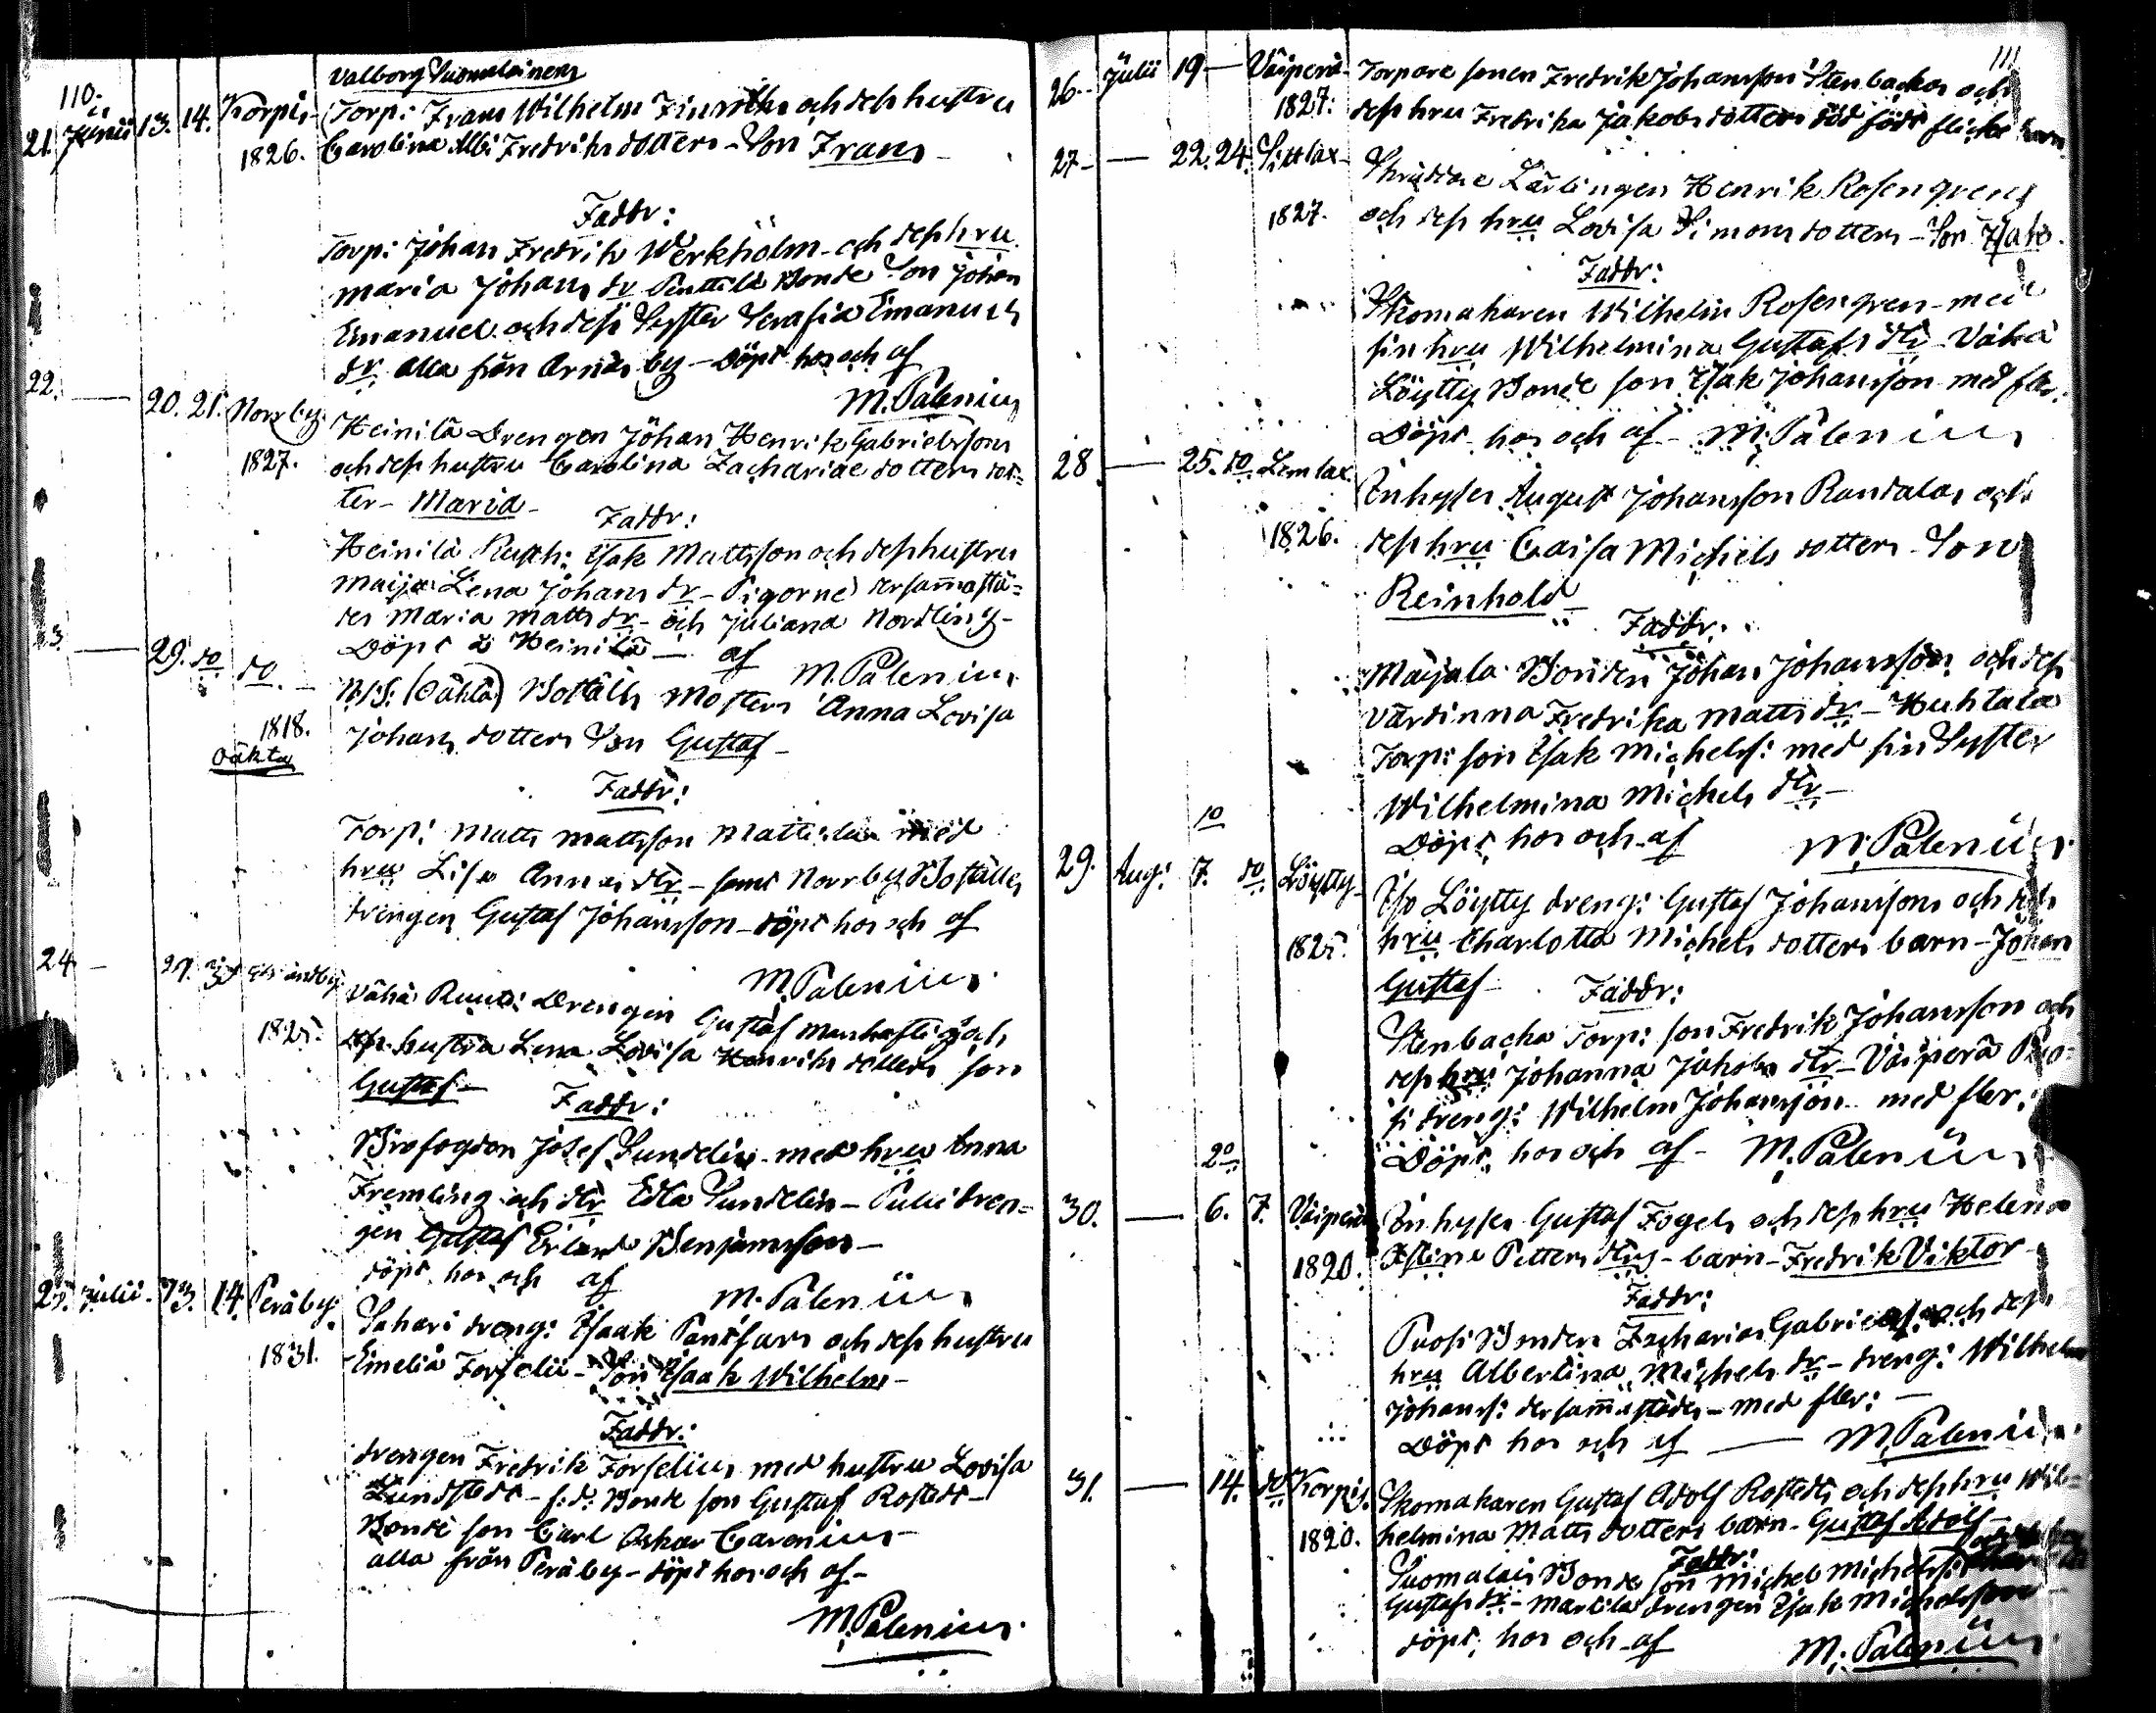 110.
Valborg Suomalainens
21. Junii 13. 14. Korpis- Torp: Frans Wilhelm Finroths och dess hustru
1826. Carolina Albi Fredriks dotters - Son Frans -
Faddr:
Torp: Johan Fredrik Werkholm - och dess hru
Maria Johans dr Penttilä Bonde Son Johan
Emanuel och dess Syster Serafia Emanuels
dr alla från Arnäs by - Döpt hos och af
M. Palenius
22. — 20. 21. Norrby Heinilä Drengen Johan Henrik Gabrielssons
1827. och dess hustru Carolina Zachariae dotters dot=
ter - Maria -
Faddr:
Heinilä Rusth: Isak Mattsson och dess hustru
Maija Lena Johans dr - Pigorne dersammastä=
des Maria Matts dr - och Juliana Nordling -
Döpt å Heinilä — af M. Palenius
3. — 29. do do. - N.S: (Oäkta) Boställs Mosters Anna Lovisa
1818. Johans dotters Son Gustaf -
Oäkta
Faddr:
Torp: Matts Mattsson Mattila med
hru Lisa Annas dr - samt Norrby Boställs
drengen Gustaf Johansson - döpt hos och af
M. Palenius
24 - 27. Vähä Drengen Gustaf och
1825. dess hustru Lena Lovisa Henriks dotters son
Gustaf -
Faddr:
Brofogden Josef Sundelin - med hru Anna
Fremling och dr Edla Sundelin - Puli dren=
gen Gustaf Erland Benjamsson -
döpt hos och af M. Palenius
25. Julii - 13. 14. Peräby. Sahari dreng: Isaak Pantsars och dess hustru
1831. Emelia Forselii - Son Isaak Wilhelm -
Faddr:
drengen Fredrik Forselius med hustru Lovisa
Lundstedt - f.d. Bonde son Gustaf Rostedt -
Bonde son Carl Oskar Caronius -
alla från Peräby - döpt hos och af -
M. Palenius
111
26. Julii 19 — Väiperä Torpare sonen Fredrik Johansson Stenbackas och
1827: dess hru Fredrika Jakobs dotters död född flicke barn
27 - — 22. 24. Sittlax - Skräddare Lärlingen Henrik Rosengrens
1827. och dess hru Lovisa Simons dotters - Son Isak.
Faddr:
Skomakaren Wilhelm Rosengren - med
sin hru Wilhelmina Gustafs dtr - Vähä
Löytty Bonde son Isak Johansson med fler.
Döpt hos och af - M. Palenius
28. — 25. do Lemlax. Inhyses August Johansson Randalas och
1826. dess hru Caisa Michels dotters - Son
Reinhold -
Faddr:
Maijala Bonden Johan Johansson och dess
Värdinna Fredrika Matts dr - Huhtala
Torp: son Isak Michelss: med sin Syster
Wilhelmina Michels dtr -
Döpt hos och af M. Palenius
10
29. Aug: 7. do Löytty - Iso Löytty dreng: Gustaf Johanssons och dess
1825. hru Charlotta Michels dotters barn - Johan
Gustaf -
Faddr:
Stenbacka Torp: son Fredrik Johansson och
dess hru Johanna Jakobs dtr - Väiperä Puo=
si dreng: Wilhelm Johansson - med fler:
Döpt hos och af - M. Palenius
20
30. — 6. 7. Väiperä Inhyses Gustaf Fogels och dess hru Helena
1820. Petters dtrs - barn - Fredrik Viktor -
Faddr:
Puosi Bonden Zacharias Gabrielss: och dess
hru Albertina Michels dr - dreng: Wilhelm
Johanss: dersammastädes - med fler: -
Döpt hos och af — M. Palenius
31. — 14. do Korpis. Skomakaren Gustaf Adolf Rostedts och dess hru Wil=
1820. helmina Matts dotters barn - Gustaf Adolf -
Faddr:
Suomalais Bonde son Michel Michelss:
Gustafs dr - Markila drengen Isak Michelsson
döpt hos och af M. Palenius